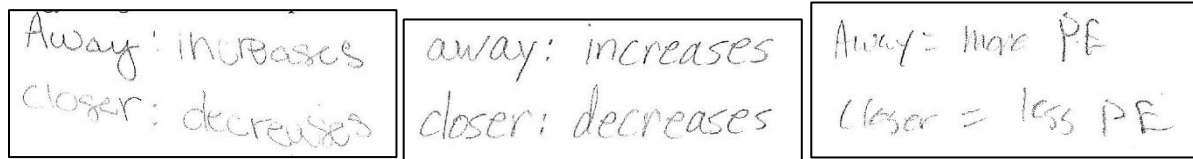 Away: increases
closer: decreases
away: increases
closer: decreases
Away = more PE
Closer = less PE